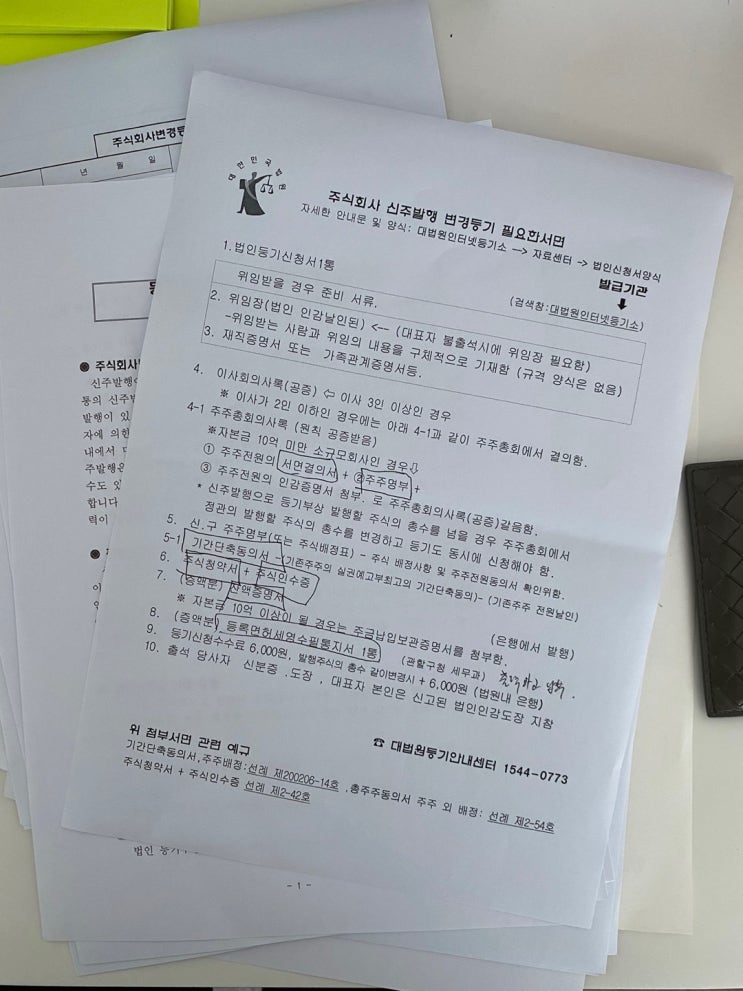 주식회사변경등
년 월 일
대한민국법원
주식회사 신주발행 변경등기 필요한서면
자세한 안내문 및 양식: 대법원인터넷등기소 --> 자료센터 -> 법인신청서양식
발급기관
1.법인등기신청서1통
(검색창:대법원인터넷등기소)
위임받을 경우 준비 서류.
2. 위임장(법인 인감날인된) <-- (대표자 불출석시에 위임장 필요함)
-위임받는 사람과 위임의 내용을 구체적으로 기재함 (규격 양식은 없음)
3. 재직증명서 또는 가족관계증명서등.
4. 이사회의사록(공증) ⇦ 이사 3인 이상인 경우
※ 이사가 2인 이하인 경우에는 아래 4-1과 같이 주주총회에서 결의함.
4-1 주주총회의사록 (원칙 공증받음)
※자본금 10억 미만 소규모회사인 경우⇩
① 주주전원의 서면결의서 + ②주주명부 +
③ 주주전원의 인감증명서 첨부. 로 주주총회의사록(공증)갈음함.
* 신주발행으로 등기부상 발행할 주식의 총수를 넘을 경우 주주총회에서
정관의 발행할 주식의 총수를 변경하고 등기도 동시에 신청해야 함.
5. 신.구 주주명부(또는 주식배정표) - 주식 배정사항 및 주주전원동의서 확인위함.
5-1 기간단축동의서 -(기존주주의 실권예고부최고의 기간단축동의)- (기존주주 전원날인)
6. 주식청약서 + 주식인수증
7. (증액분) 잔액증명서
(은행에서 발행)
※ 자본금 10억 이상이 될 경우는 주금납입보관증명서를 첨부함.
8. (증액분) 등록면허세영수필통지서 1통 (관할구청 세무과)
9. 등기신청수수료 6,000원, 발행주식의 총수 같이변경시 + 6,000원 (법원내 은행)
10. 출석 당사자 신분증 .도장 , 대표자 본인은 신고된 법인인감도장 지참
위 첨부서면 관련 예규
☎ 대법원등기안내센터 1544-0773
기간단축동의서,주주배정:선례 제200206-14호 ,총주주동의서 주주 외 배정: 선례 제2-54호
주식청약서 + 주식인수증 선례 제2-42호
◉ 주식회사
신주발행
동의 신주
발행이 있
자에 의한
내에서
주발행은
수도 있
합니다
력이
법인 등기
- 1 -